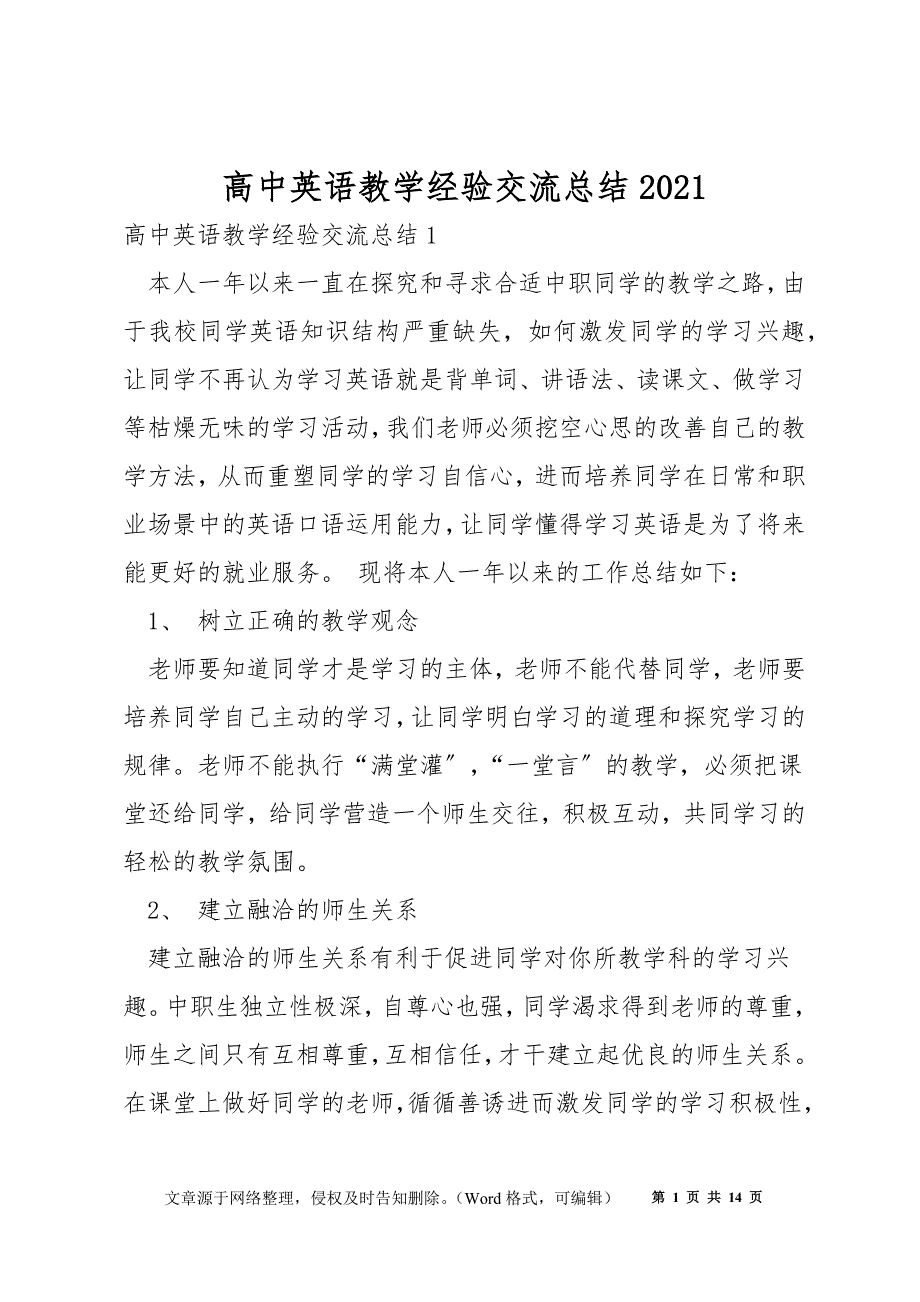 高中英语教学经验交流总结 2021
高中英语教学经验交流总结 1
本人一年以来一直在探究和寻求合适中职同学的教学之路，由
于我校同学英语知识结构严重缺失，如何激发同学的学习兴趣，
让同学不再认为学习英语就是背单词、讲语法、读课文、做学习
等枯燥无味的学习活动，我们老师必须挖空心思的改善自己的教
学方法，从而重塑同学的学习自信心，进而培养同学在日常和职
业场景中的英语口语运用能力，让同学懂得学习英语是为了将来
能更好的就业服务。 现将本人一年以来的工作总结如下：
1、 树立正确的教学观念
老师要知道同学才是学习的主体，老师不能代替同学，老师要
培养同学自己主动的学习，让同学明白学习的道理和探究学习的
规律。老师不能执行“满堂灌〞，“一堂言〞的教学，必须把课
堂还给同学，给同学营造一个师生交往，积极互动，共同学习的
轻松的教学氛围。
2、 建立融洽的师生关系
建立融洽的师生关系有利于促进同学对你所教学科的学习兴
趣。中职生独立性极深，自尊心也强，同学渴求得到老师的尊重，
师生之间只有互相尊重，互相信任，才干建立起优良的师生关系。
在课堂上做好同学的老师，循循善诱进而激发同学的学习积极性，
文章源于网络整理，侵权及时告知删除。（Word 格式，可编辑） 第 1 页 共 14 页